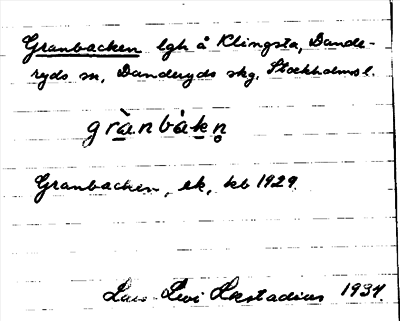 Granbacken lgh å Klingsta, Dande-
ryds sn, Danderyds skg. Stockholms l.
grànbàkn̥
Granbacken, ek, kb 1929.
Lars Levi Læstadius 1937.